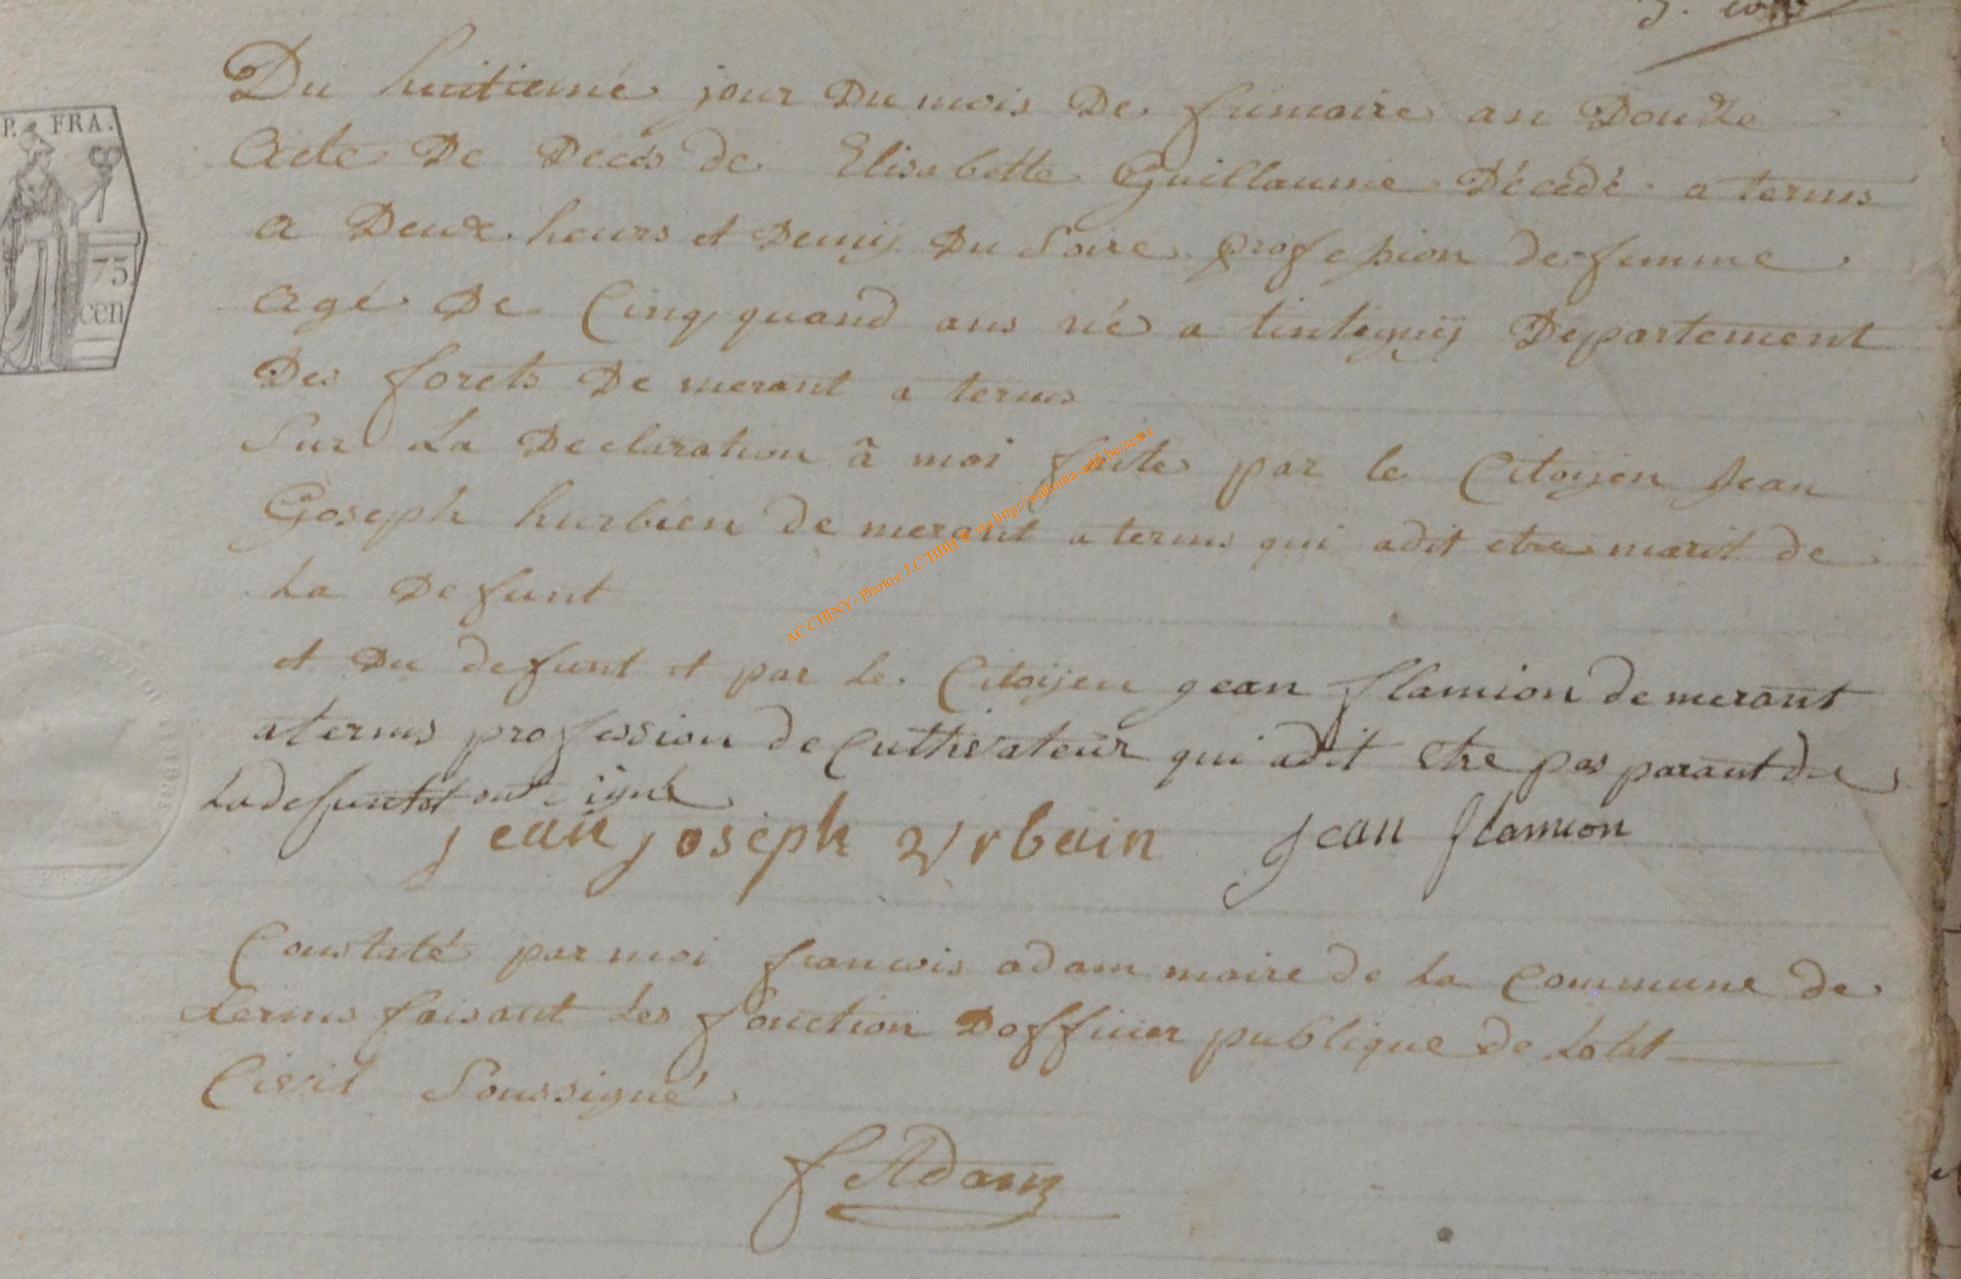 Du huitieme jour Du mois De frimaire an Douze
Acte De Decés de Elisabette Guillaume Décédé a terms
a Deux heurs et Demij Du Soire profession de femme
Agé De Cinq quand ans né a tintignij Departement
Des forets De merant a termes
Sur La Declaration â moi faite par le Citoyen Jean
Goseph hurbien de merant a terms qui adit etre marit de
La Defunt
et Du defunt et par Le Citoijen gean flamion de merant
a terms profession de Cultivateur qui adit Etre pas parant de
La defuntes ont signé
jean joseph Urbain Jean flamion
Constaté par moi francois adam maire de La Commune de
terms faisant Les fonction Dofficier publique de Letat
Civil Soussigné
f Adam
P. FRA.
75
cen
AC CHINY - Photos: J.C TIBH